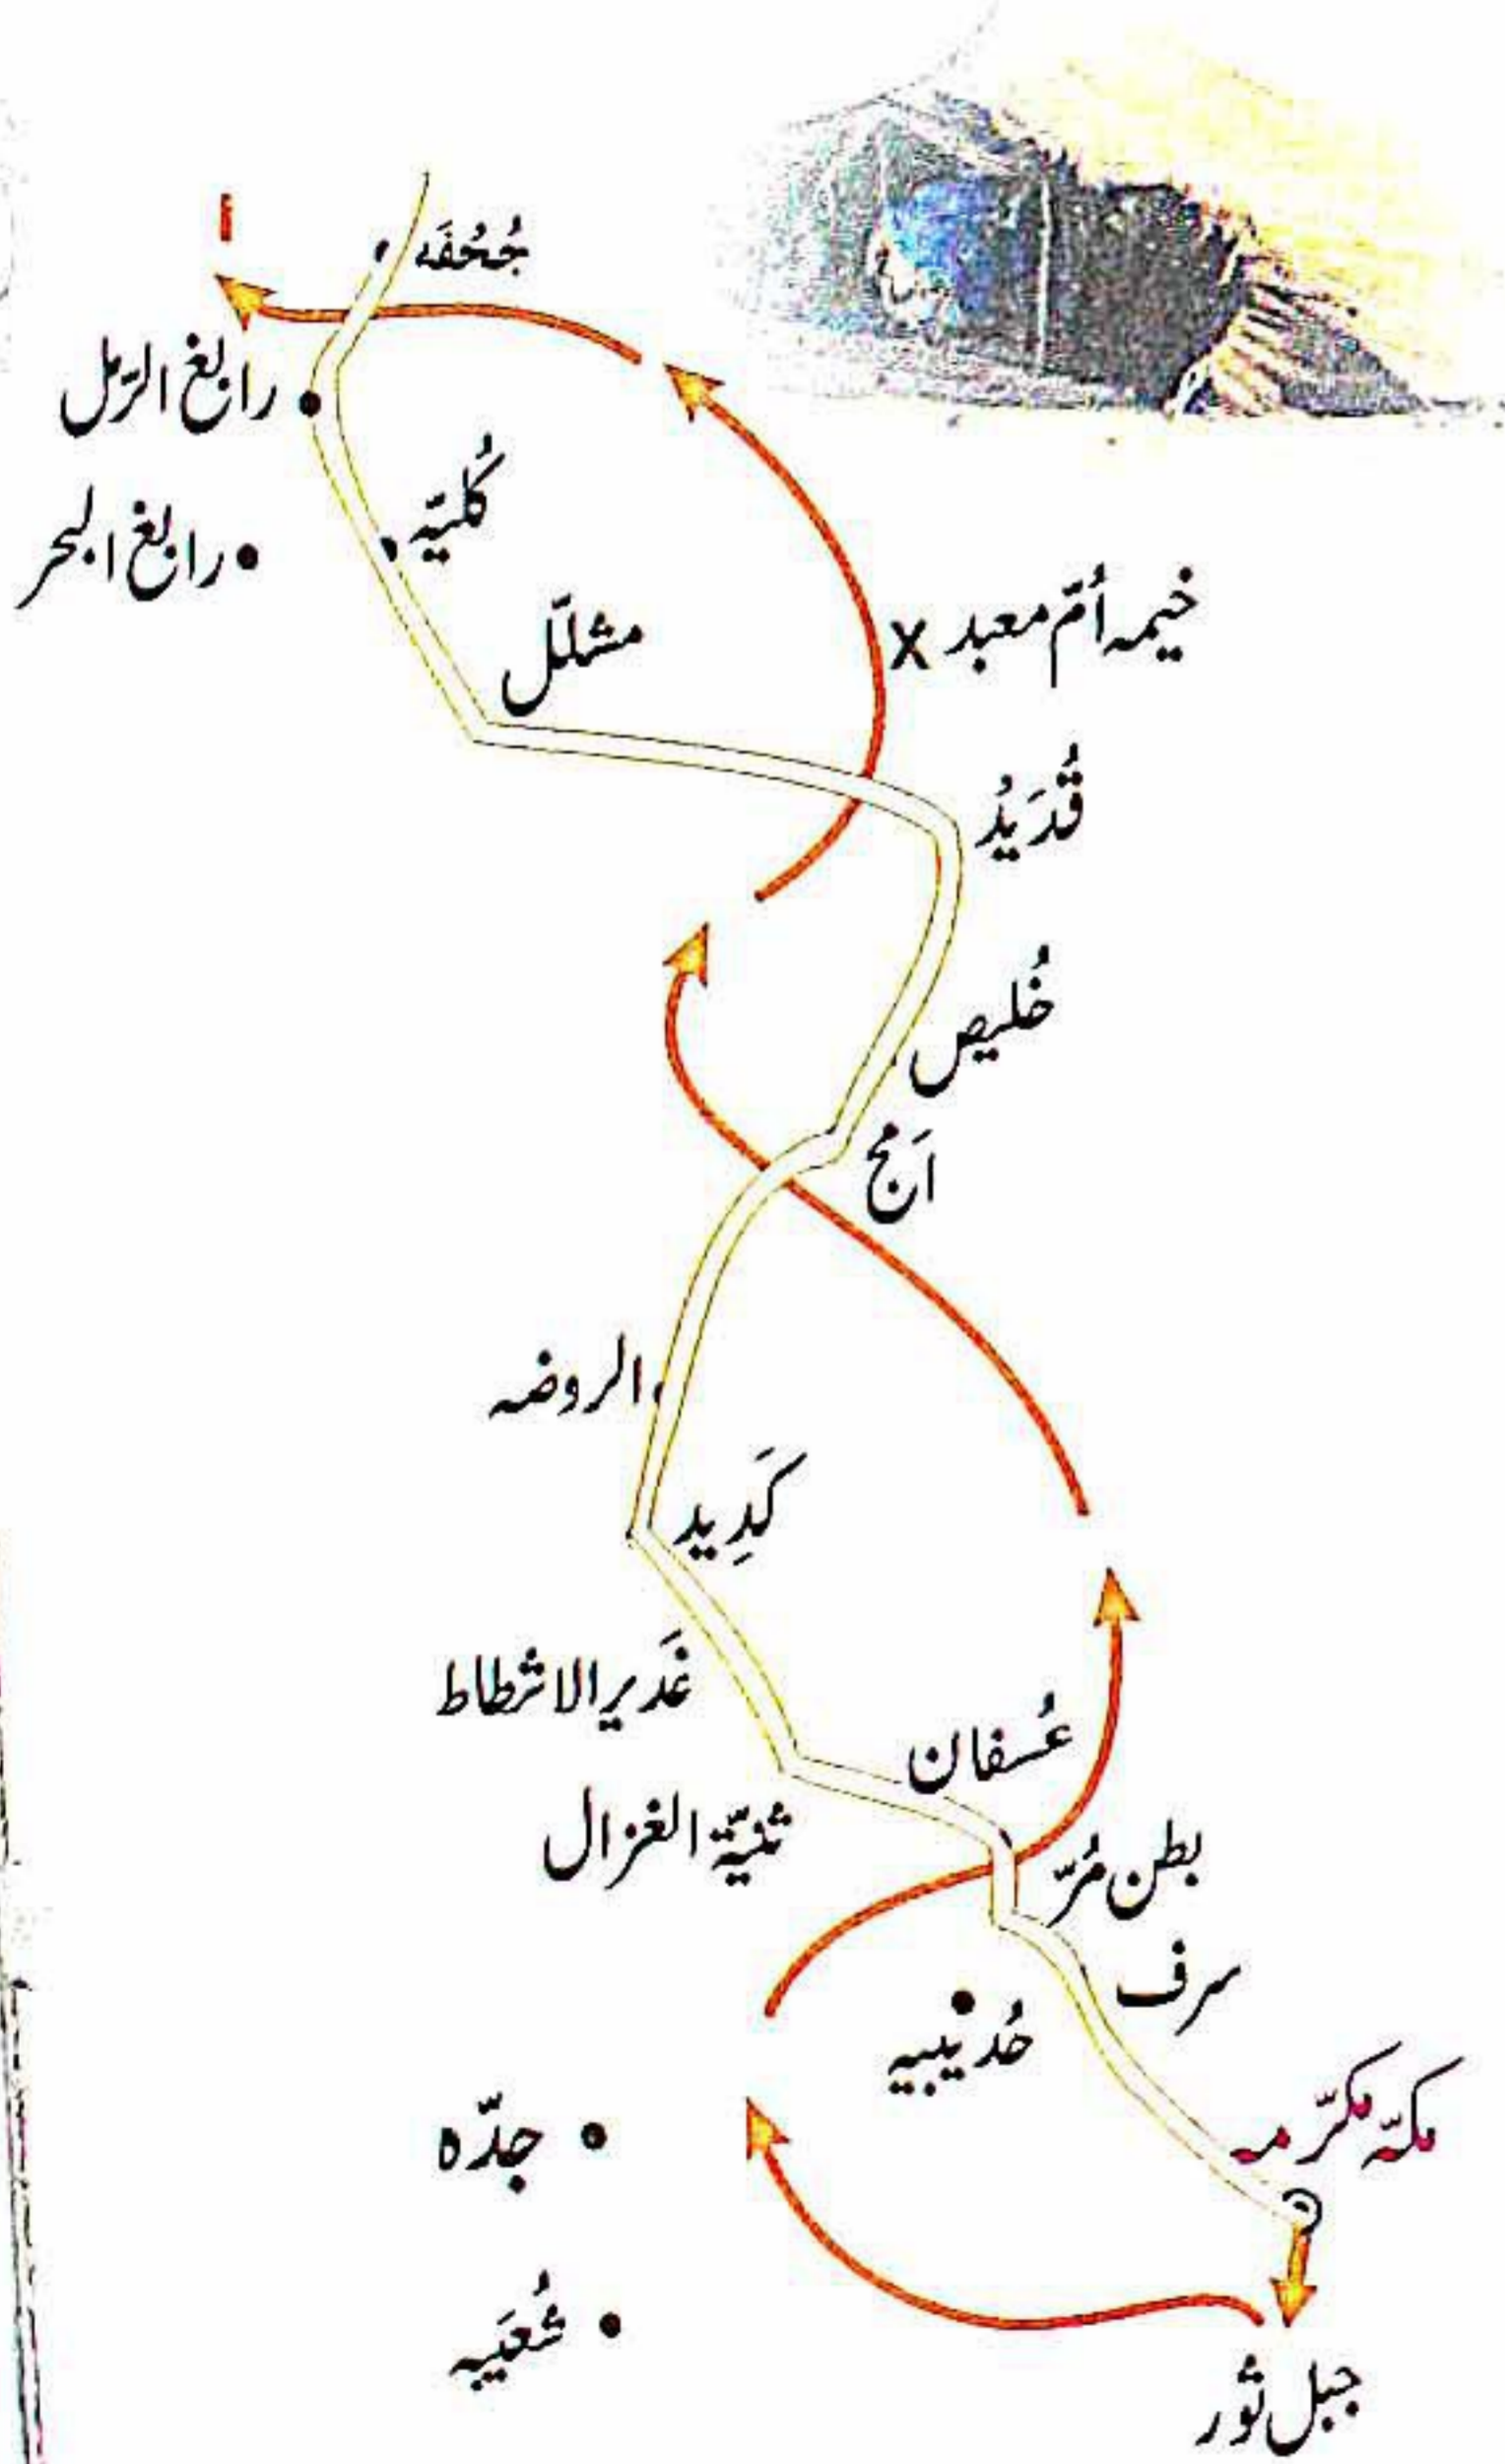 جُحْفَہ
أ
رابغ الرّمل
کُلَیّہ
رابغ البحر
خیمہ اُمّ معبد X
مشلّل
قُدَیْدُ
خُلیص
اَمج
الروضہ
کَدِید
غَدیر الاشطاط
عُسفان
ثنیّۃ الغزال
بطن مُرّ
سرف
حُدیبیہ
مکّہ مکرّمہ
جدّہ
شُعَیبہ
جبل ثور